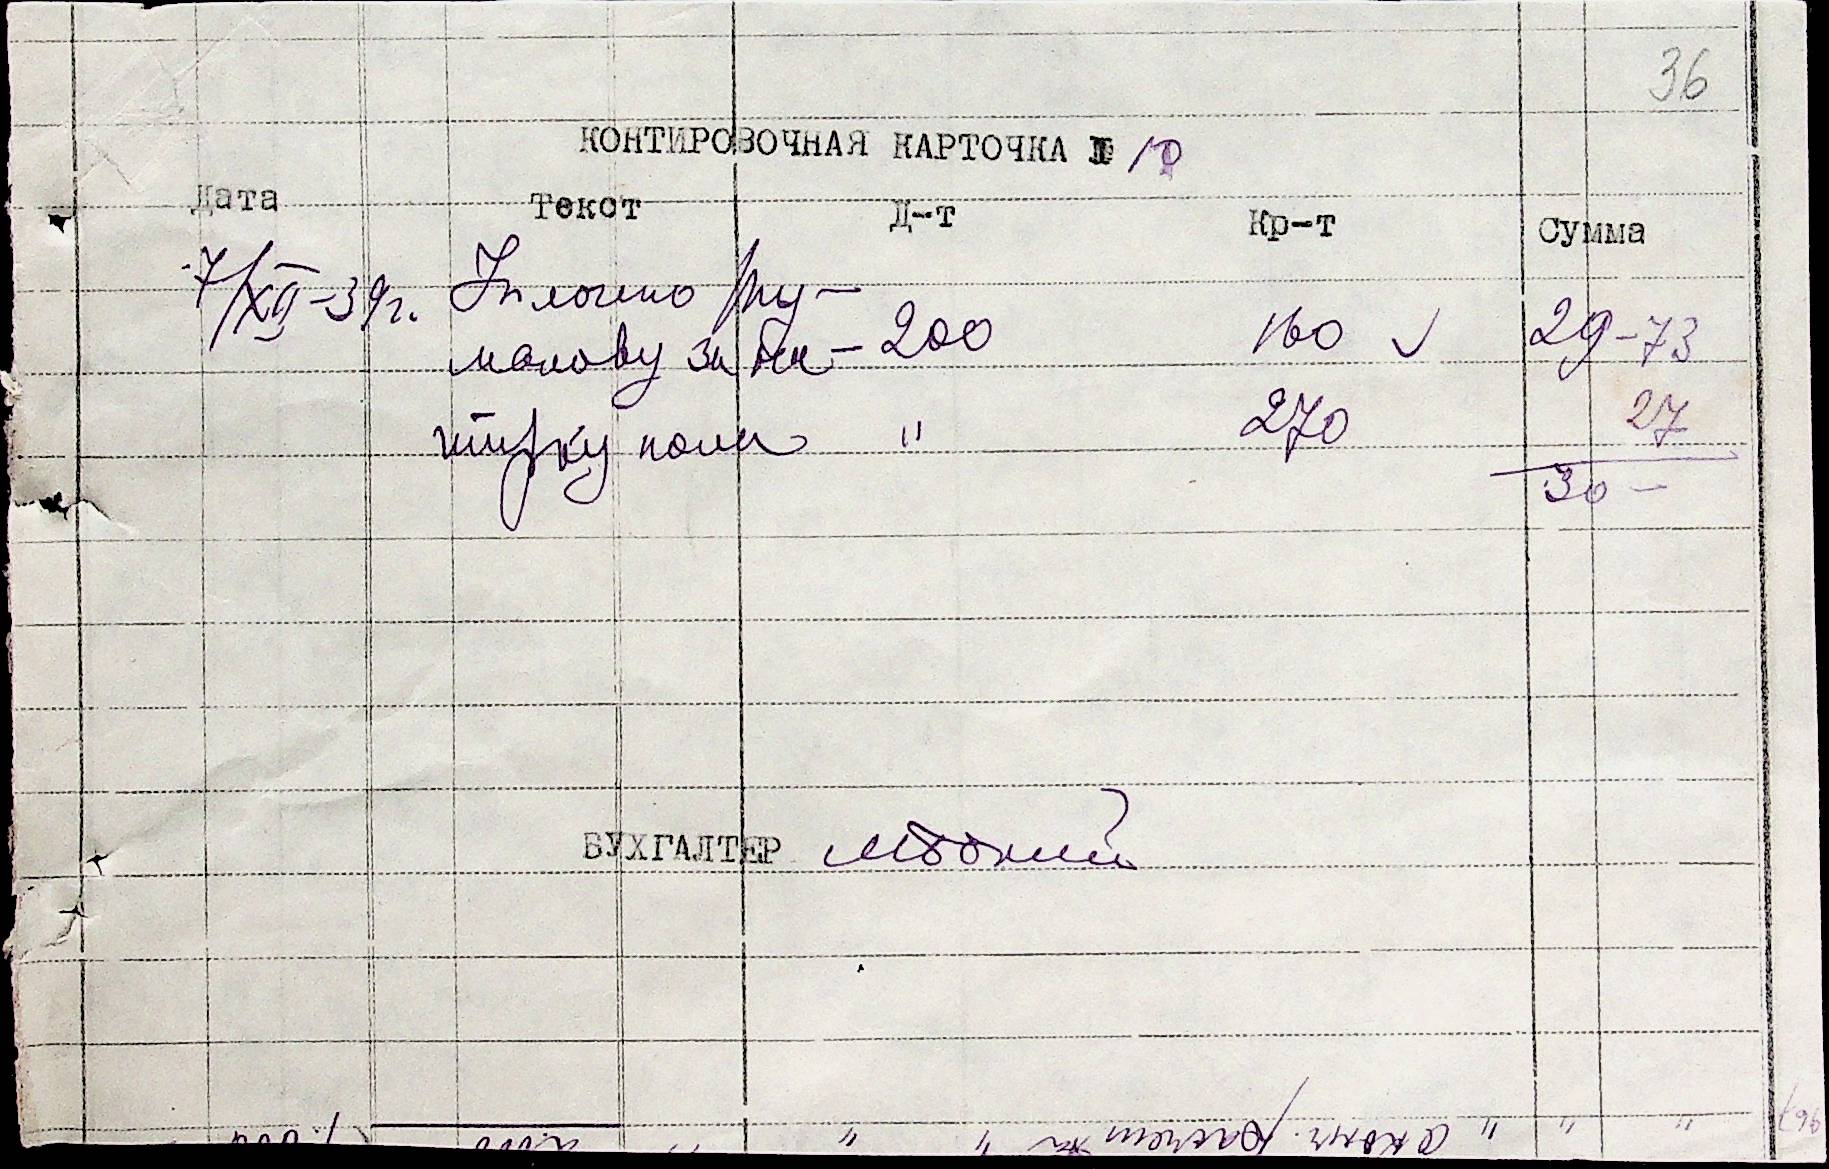 36
КОНТИРОВОЧНАЯ КАРТОЧКА № 10
Дата Текст Д-т Кр-т Сумма
7/XII-39г. Уплочено Шу-
малову за на- 200 160 ✓ 29-73
тирку пола " 270 27
30 -
БУХГАЛТЕР
" " "